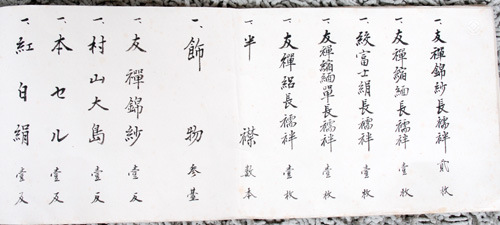 一、友禅錦紗長襦袢 貳枚
一、友禅縮緬長襦袢 壹枚
一、絞富士絹長襦袢 壹枚
一、友禅縮緬單長襦袢 壹枚
一、友禅絽長襦袢 壹枚
一、半襟 数本
一、飾物 参基
一、友禅錦紗 壹反
一、村山大島 壹反
一、本セル 壹反
一、紅白絹 壹反